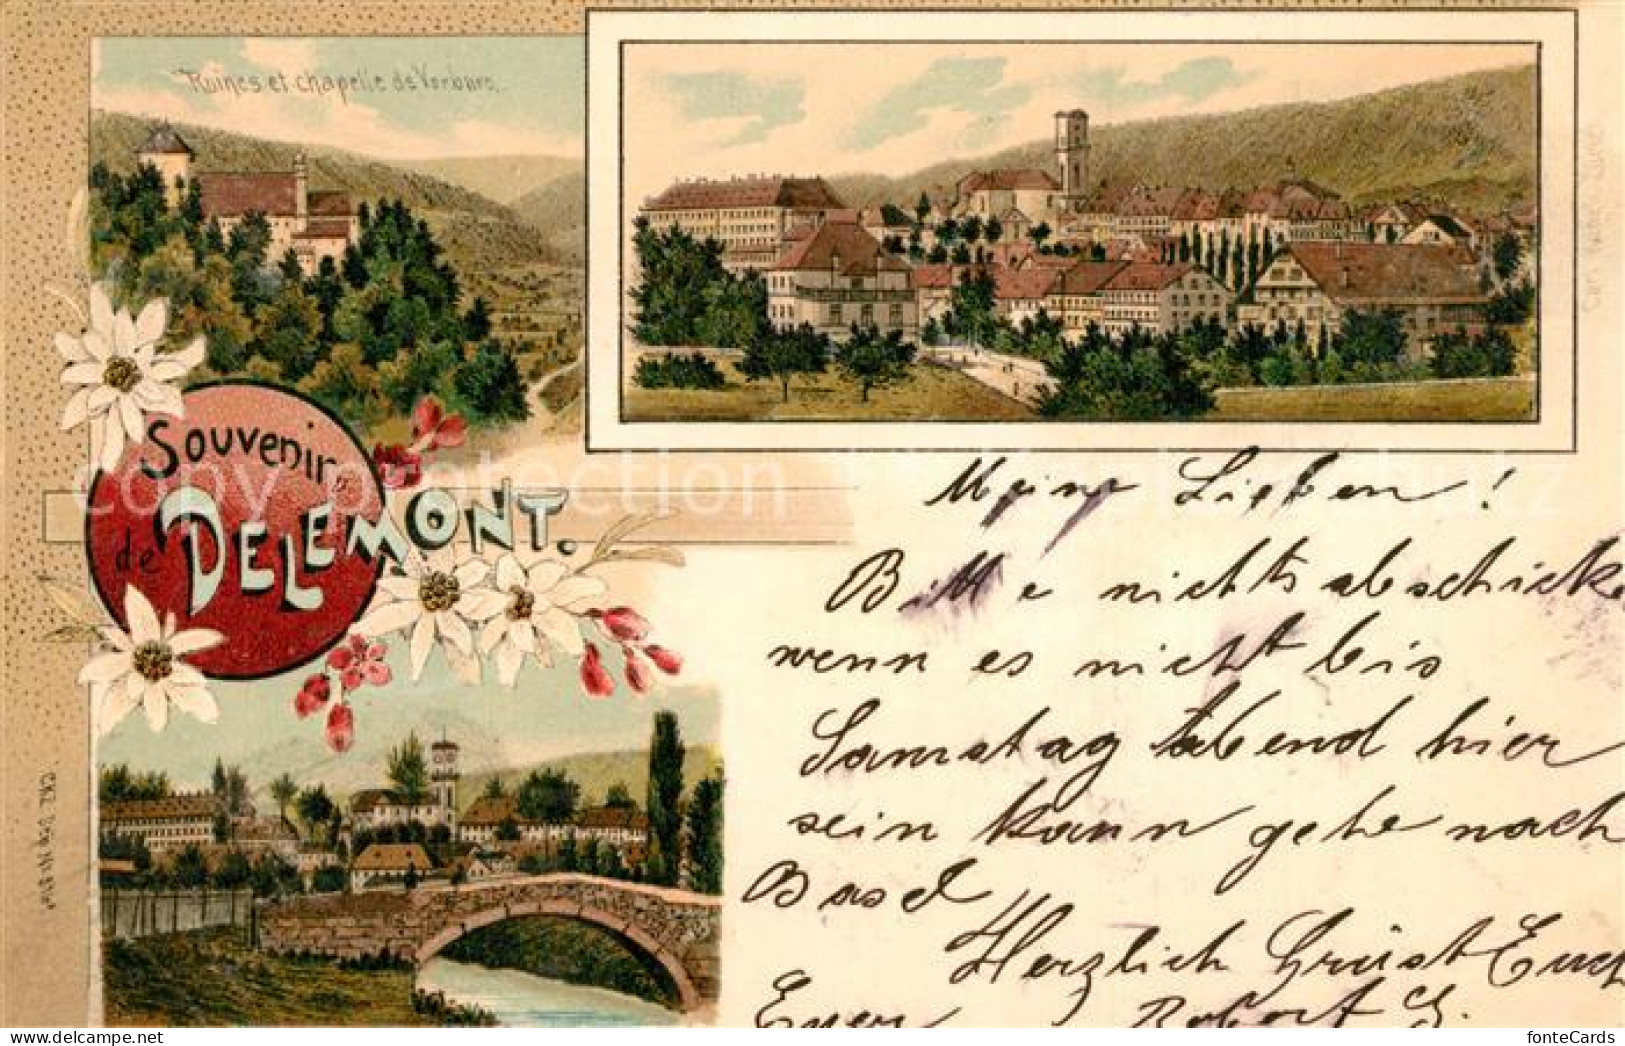 Ruines et chapelle de Vorburg.
Souvenir
de DELEMONT.
Meine Lieben!
Bitte nichts abschicken
wenn es nicht bis
Samstag Abend hier
sein kann gehe nach
Basel
Herzlich Grüst Euch
Euer Robert G.
copy protection
fonteCards